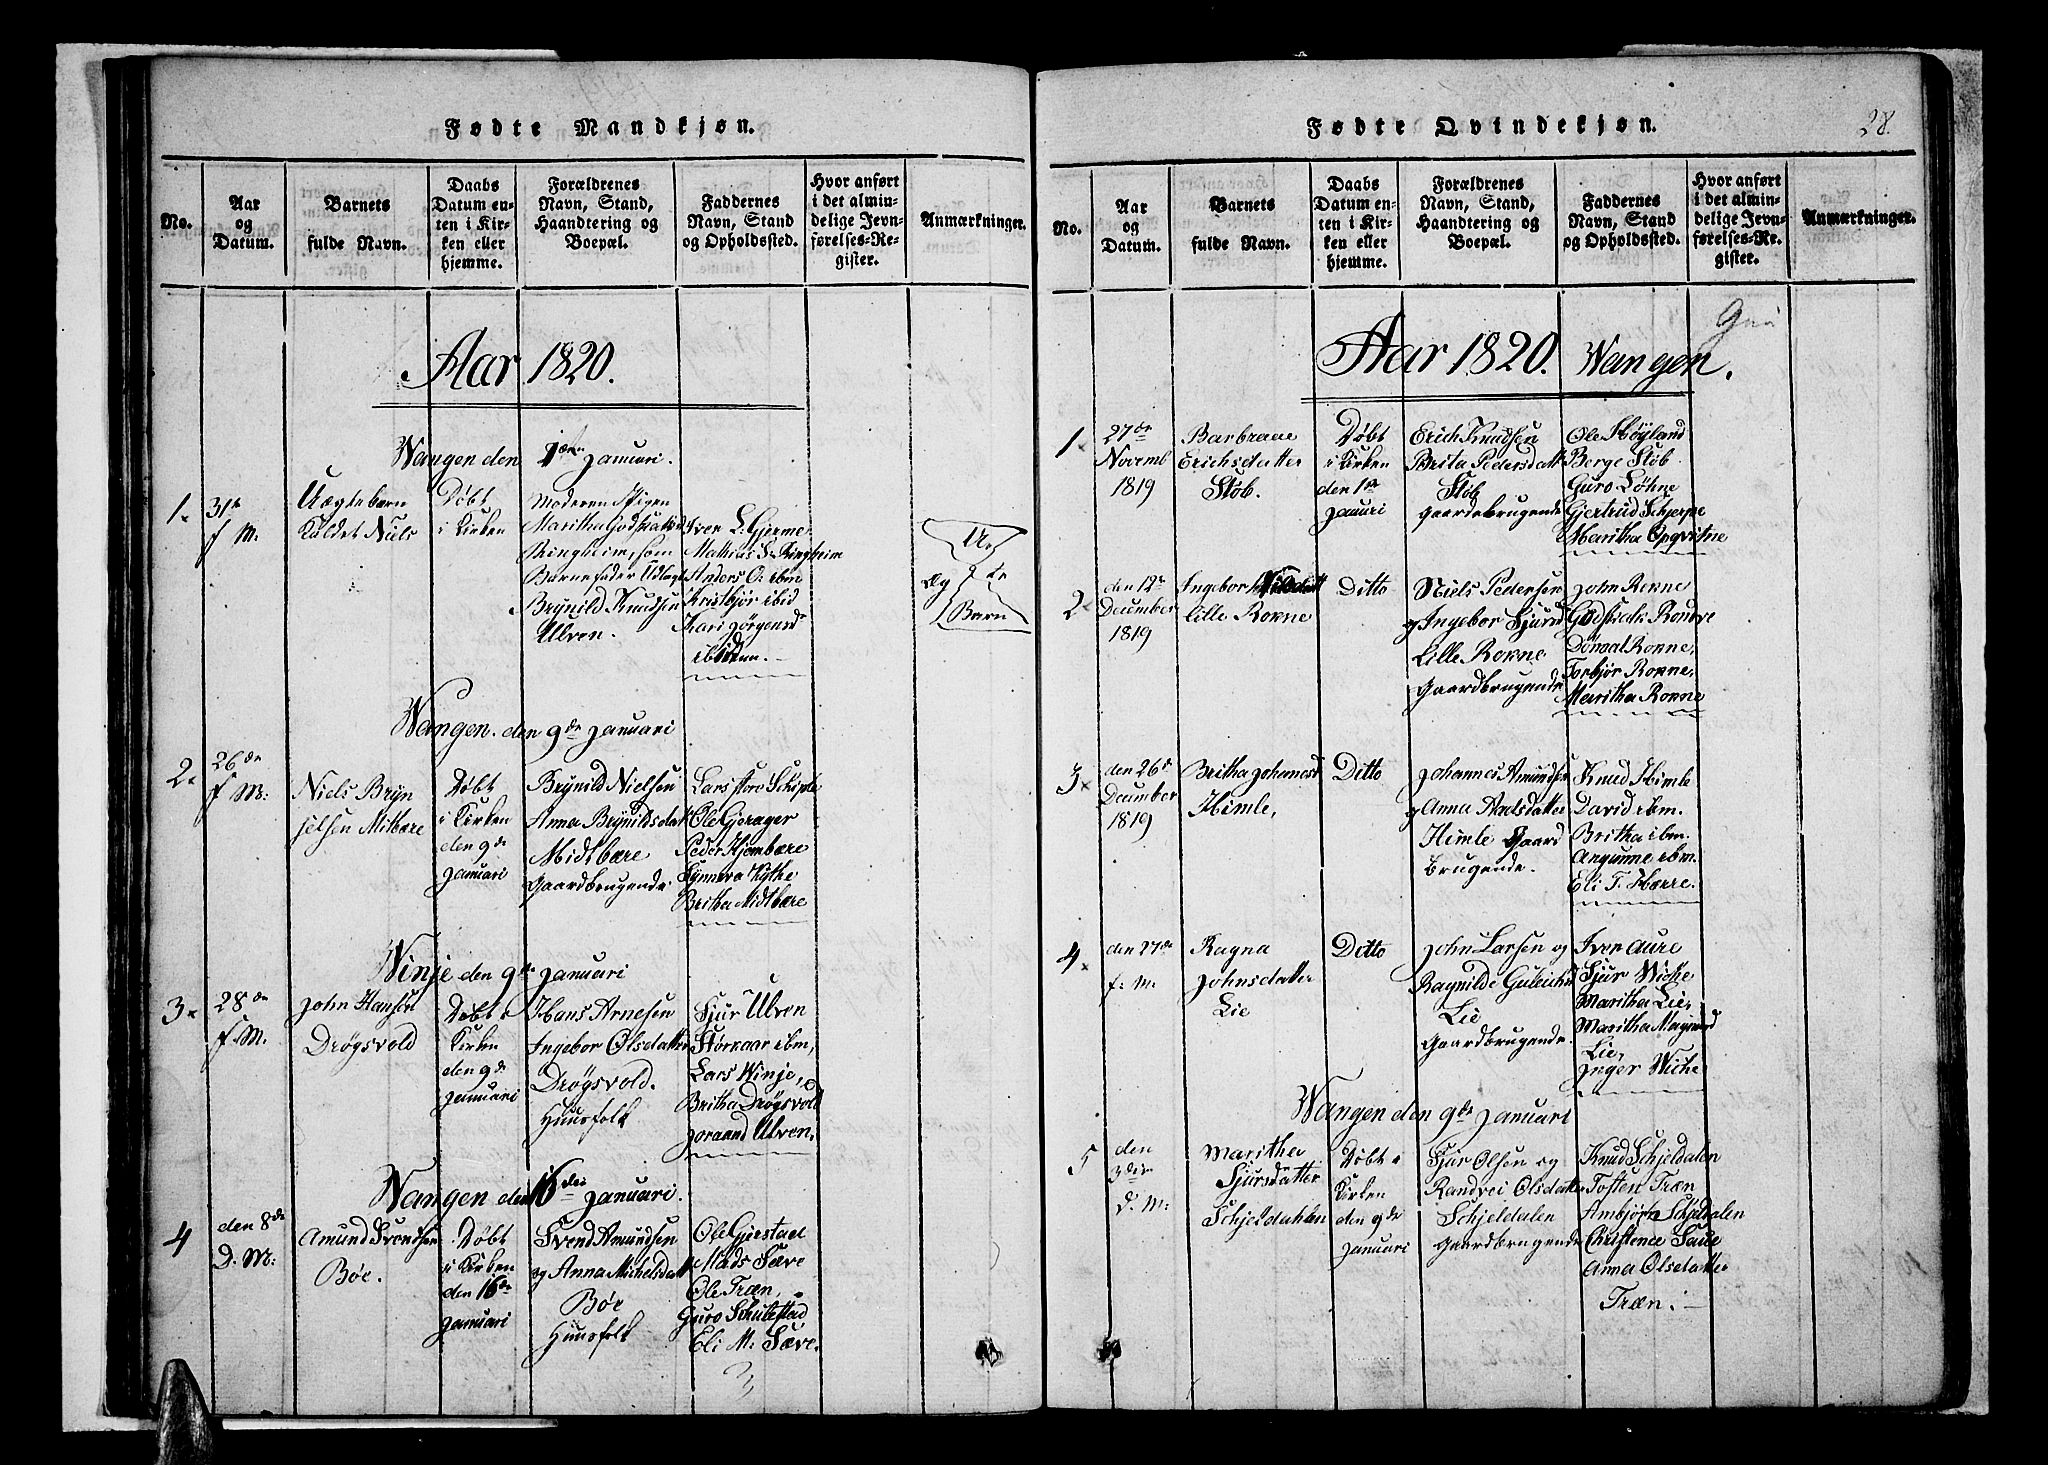 Fødte Mandkjøn.
No.
Aar
og
Datum.
Barnets
fulde Navn.
Daabs
Datum en-
ten i Kir-
ken eller
hjemme.
Forældrenes
Navn, Stand,
Haandtering og
Boepæl.
Faddernes
Navn, Stand
og Opholdssted.
Hvor anført
i det almin-
delige Jevn-
førelses-Re-
gister.
Anmærkninger.
Aar 1820.
Wangen den 1ste Januari.
1.
31te
f M.
Uægtebarn
Kaldet Niels
Døbt
i Kirken
Moderen Pigen
Maritha Godskalksd
Ringheim, som
Barnefader Udlagt
Brÿnild Knudsen
Ulven.
Iver L. Gjerme
Mathias S. Ringheim
Anders O. ibm
Kristbjør ibid
Kari Jørgensd
ibidem.
U
Æg te
Barn
Wangen. den 9de Januari
2.
26de
f M:
Niels Brÿn
jelsen Mitbære
Døbt
i Kirken
den 9de
Januari
Brÿnild Nielsen
Anna Brÿnildsdatt
Midtbære
Gaardbrugende
Lars store Skiple
Ole Gjerager
Peder Hjembære
Sÿnneva Kÿthe
Britha Midtbære
Winje den 9de Januari
3.
28de
f. M:
John Hansen
Drøgsvold
Døbt i
Kirken
den 9de
Januari
Hans Arnesen
Ingebor Olsdatter
Drøgsvold.
Huusfolk
Sjur Ulven
Størkaar ibm,
Lars Winje,
Britha Drøgsvold
Joraand Ulven,
Wangen den 16de Januari.
4
den 8de
D. M:
Amund Svendsen
Bøe.
Døbt
i Kirken
den 16de
Januari
Svend Amundsen
og Anna Michelsdatt
Bøe
Huusfolk
Ole Gjerstad
Mads Sæve
Ole Træn,
Guro Schulestad
Eli M. Sæve.
Fødte Qvindekjøn.
28.
No.
Aar
og
Datum.
Barnets
fulde Navn.
Daabs
Datum en-
ten i Kir-
ken eller
hjemme.
Forældrenes
Navn, Stand,
Haandtering og
Boepæl.
Faddernes
Navn, Stand
og Opholdssted.
Hvor anført
i det almin-
delige Jevn-
førelses-Re-
gister.
Anmærkninger.
Aar 1820. Wangen.
1
27de
Novemb
1819
Barbraae
Erichsdatter
Støb.
Døbt
i Kirken
den 1ste
Januari
Erich Knudsen
Brita Pedersdatt
Støb
gaardebrugende
Ole Høÿland
Børge Støb
Guro Løhne
Gjertrud Schjerpe
Maritha Opqvitne
2
den 12te
December
1819
Ingebor Nielsdatt
lille Rokne
Ditto
Niels Pedersen
og Ingebor Sjursd
Lille Rokne
Gaardbrugende
John Rokne
Godskalk Rondve
Rokne,
Torbjør Rokne,
Maritha Rokne
3
den 26de
December
1819
Britha Johanesd
Himle,
Ditto
Johannes Amundsen
og Anna Aadsdatter
Himle Gaard
brugende.
Knud Himle
David ibm.
Britha ibm.
Angunne ibm.
Eli T. Hærre.
4
den 27de
f. M.
Ragna
Johnsdatter
Lie
Ditto
John Larsen og
Ragnilde Guleichsd
Lie
Gaardbrugende.
Iver Aure
Sjur Wiche
Maritha Lie,
Maritha
Lie,
Inger Wiche
Wangen den 9de Januari
5
den
3die
D. M:
Maritha
Sjursdatter
Schjeldahlen
Døbt i
Kirken
den 9de
Januari
Sjur Olsen og
Randvei Olsdatter
Schjeldalen
Gaardbrugende
Knud Schjeldalen
Tosten Træn
Ambjør Schjeldalen
Christence Saue
Anna Olsdatter
Træn.